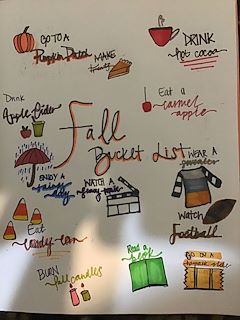 GO TO A
Pumpkin Patch
MAKE
DRINK
hot cocoa
Drink
Apple Cider
Eat a
caramel
apple
Fall
Bucket List
ENJOY A
rainy day
WATCH A
WEAR A
sweater
Eat
candy corn
Watch
Football
BURN
fall candles
Read a
book
GO ON A
hayrack ride